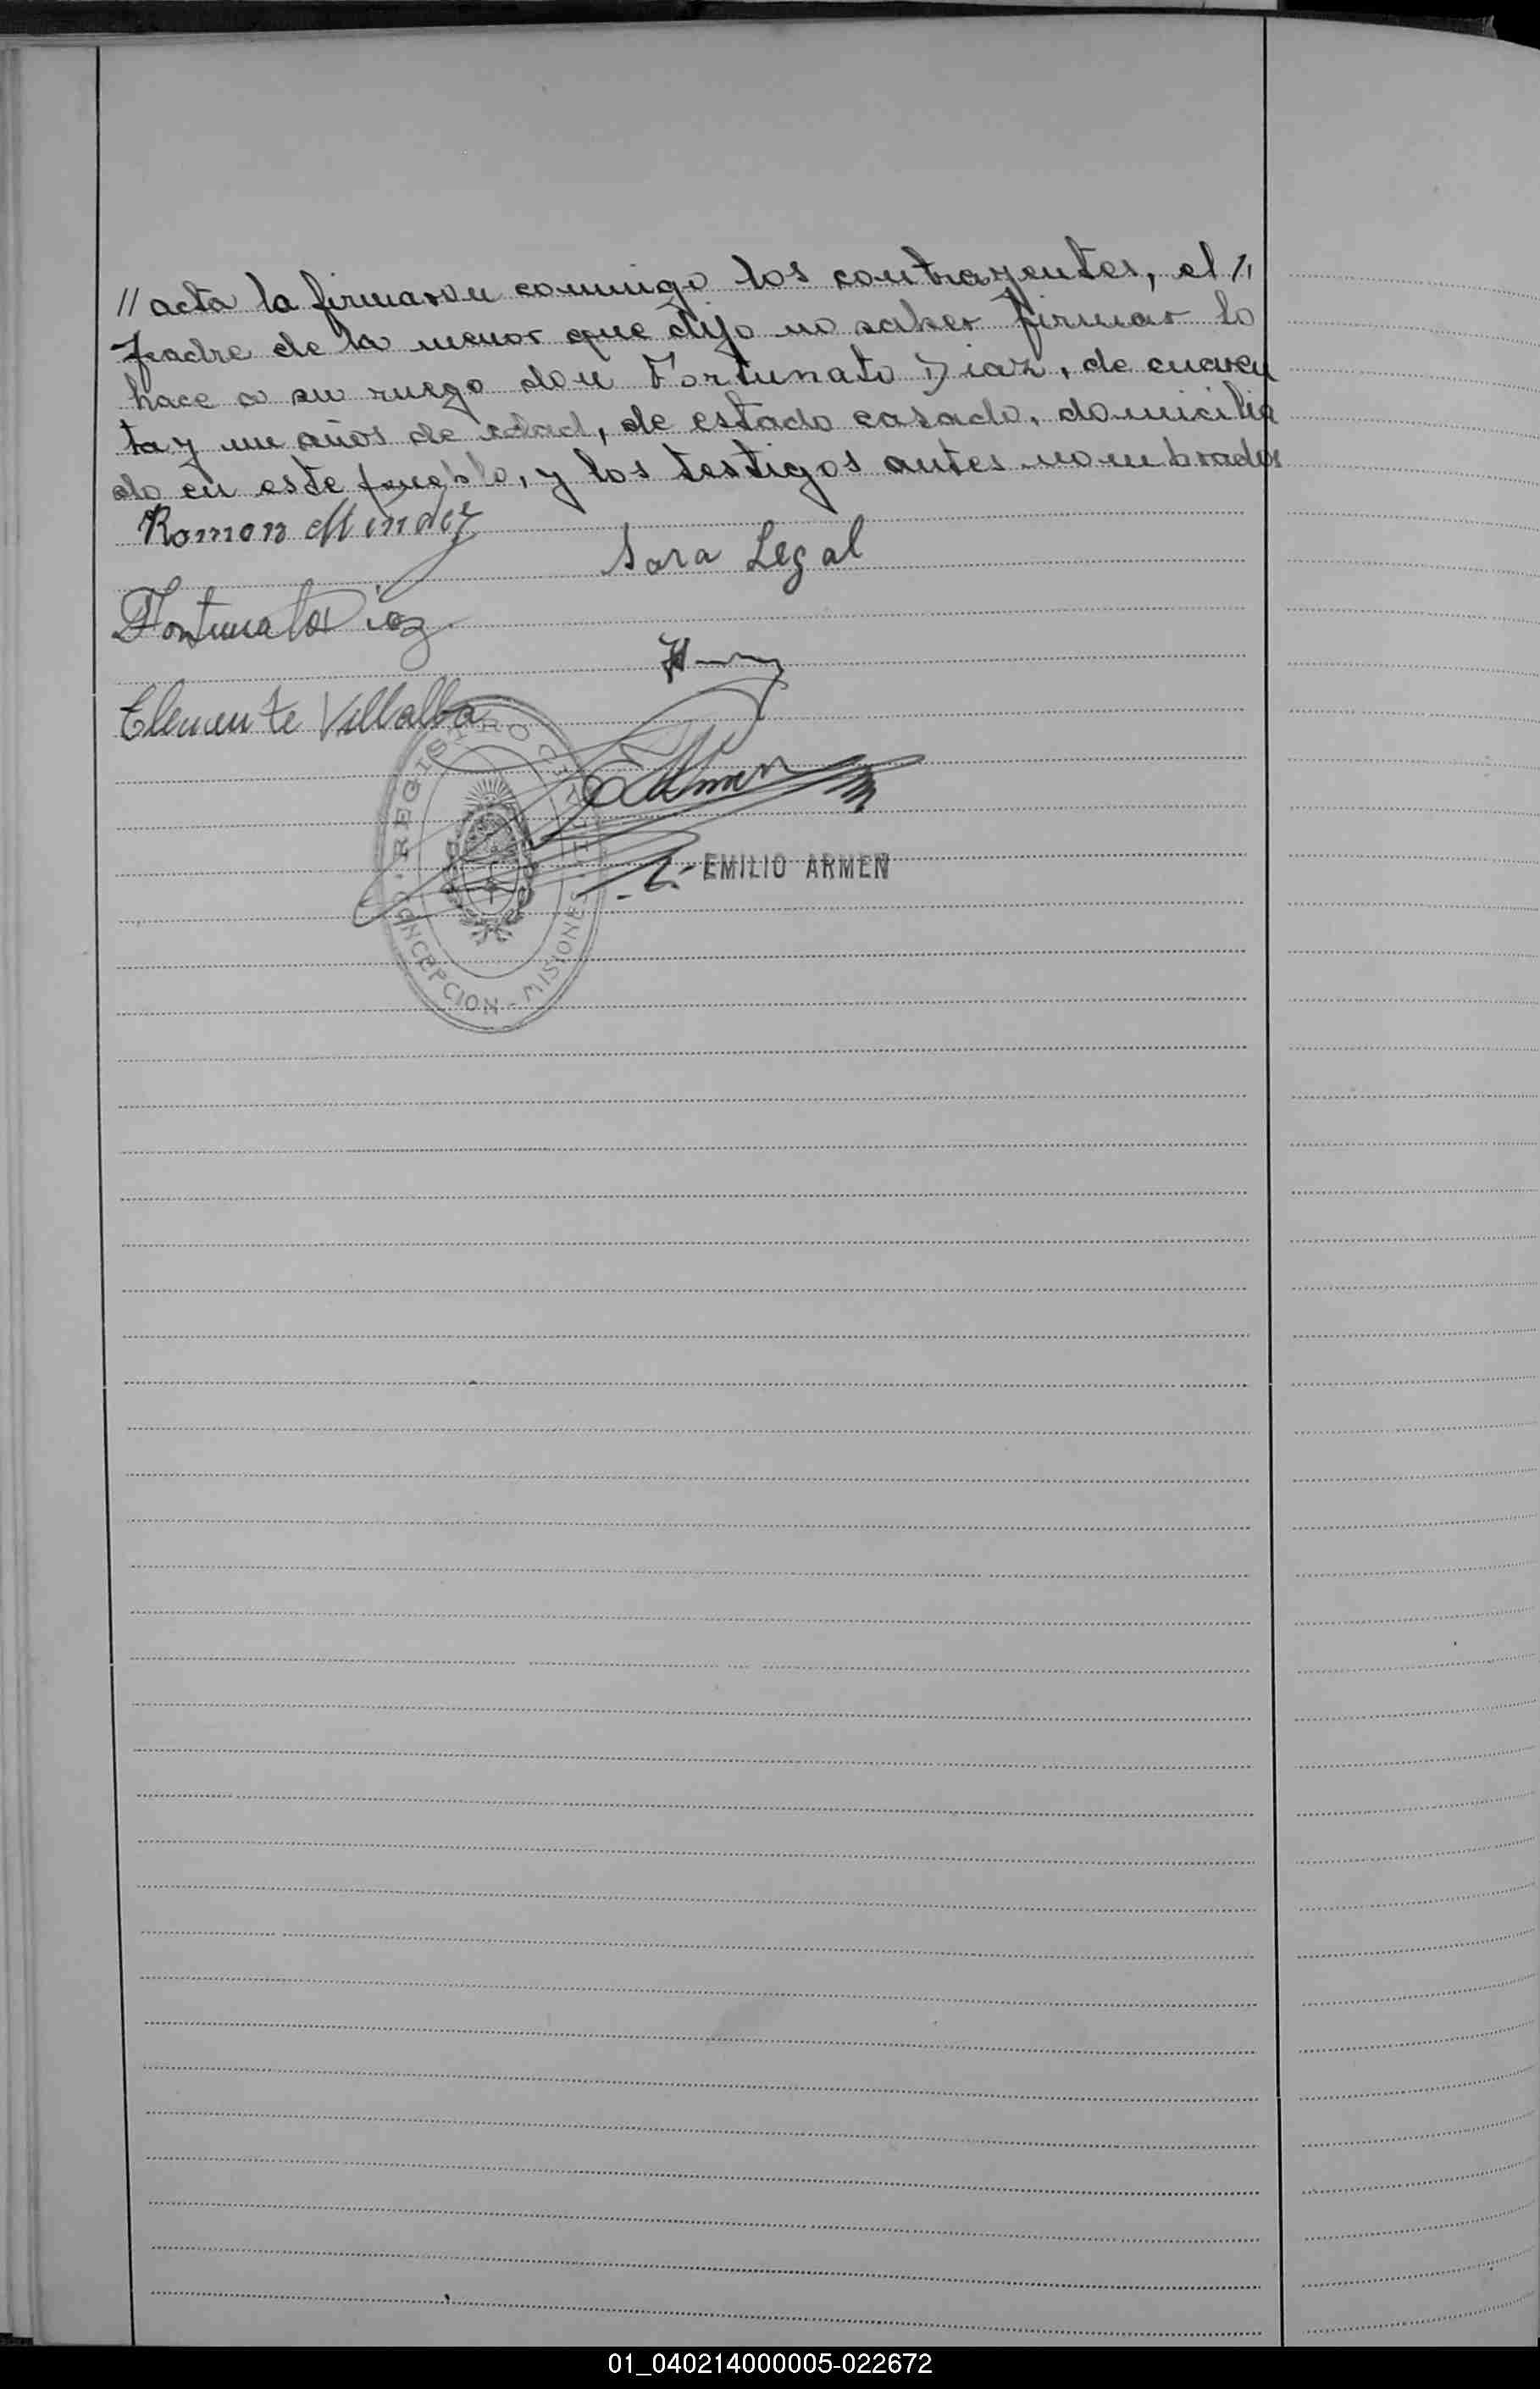 // acta la firmaron conmigo los contrayentes, el //
padre de la menor que dijo no saber firmar lo
hace a su ruego don Fortunato Diaz, de cuaren
ta y un años de edad, de estado casado, domicilia
do en este pueblo, y los testigos antes nombrados
Ramon Mendez
Sara Legal
Fortunato Diaz
Clemente Villalba
REGISTRO CIVIL
CONCEPCION - MISIONES
EMILIO ARMEN
01_040214000005-022672